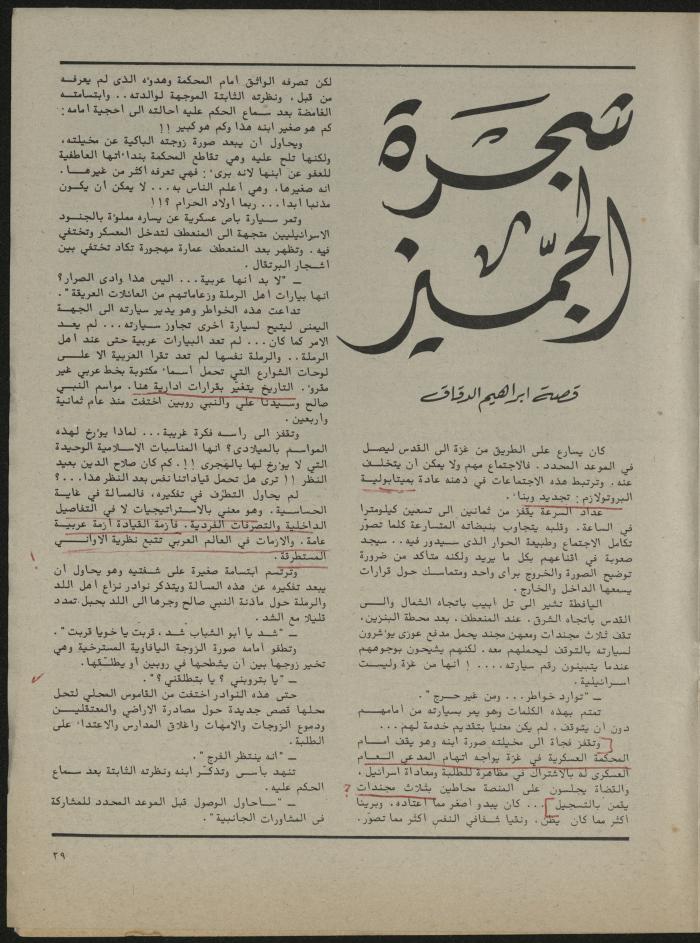 شجرة
الجمّيز
قصة ابراهيم الدقاق
كان يسارع على الطريق من غزة الى القدس ليصل
في الموعد المحدد. فالاجتماع مهم ولا يمكن أن يتخلف
عنه. وترتبط هذه الاجتماعات في ذهنه عادة بميتابولية
البروتولازم: تجديد وبناء.
عداد السرعة يقفز من ثمانين الى تسعين كيلومترا
في الساعة. وقلبه يتجاوب بنبضاته المتسارعة كلما تصوّر
تكامل الاجتماع وطبيعة الحوار الذى سيدور فيه.. سيجد
صعوبة في اقناعهم بكل ما يريد ولكنه متأكد من ضرورة
توضيح الصورة والخروج برأى واحد ومتماسك حول قرارات
يسمعها الداخل والخارج.
اليافطة تشير الى تل أبيب باتجاه الشمال والــى
القدس باتجاه الشرق. عند المنعطف، بعد محطة البنزين،
تقف ثلاث مجندات ومعهن مجند يحمل مدفع عوزى يؤشرون
لسيارته بالتوقف ليحملهم معه. لكنهم يشيحون بوجوههم
عندما يتبينون رقم سيارته.... ! انها من غزة وليست
اسرائيلية.
ــ "توارد خواطر... ومن غير حرج".
تمتم بهذه الكلمات وهو يمر بسيارته من أمامهم
دون أن يتوقف. لم يكن معنيا بتقديم خدمة لهم...
وتقفز فجأة الى مخيلته صورة ابنه وهو يقف امــام
المحكمة العسكرية في غزة يواجه اتهام المدعي العــام
العسكرى له بالاشتراك في مظاهرة للطلبة ومعاداة اسرائيل.
والقضاة يجلسون على المنصة محاطين بثلاث مجندات ؟
يقمن بالتسجيل ... كان يبدو أصغر مما اعتاده. وبريئا
أكثر مما كان يظن. ونقيا شفافي النفس أكثر مما تصوّر.
لكن تصرفه الواثق أمام المحكمة وهدوءه الذى لم يعرفــه
من قبل. ونظرته الثابتة الموجهة لوالدته.. وابتسامتــه
الغامضة بعد سماع الحكم عليه أحالته الى أحجية أمامه:
كم هو صغير ابنه هذا وكم هو كبير !!
ويحاول أن يبعد صورة زوجته الباكية عن مخيلته،
ولكنها تلح عليه وهي تقاطع المحكمة بنداءاتها العاطفية
للعفو عن ابنها لانه برىء: فهي تعرفه أكثر من غيرهــا.
انه صغيرها، وهي أعلم الناس به... لا يمكن أن يكــون
مذنبا أبدا... ربما أولاد الحرام ؟!!
وتمر سيارة باص عسكرية عن يساره مملوءة بالجنــود
الاسرائيليين متجهة الى المنعطف لتدخل المعسكر وتختفي
فيه. وتظهر بعد المنعطف عمارة مهجورة تكاد تختفي بين
أشجار البرتقال.
ــ "لا بد أنها عربية... أليس هذا وادى الصرار؟
انها بيارات أهل الرملة وزعاماتهم من العائلات العريقة".
تداعت هذه الخواطر وهو يدير سيارته الى الجهــة
اليمنى ليتيح لسيارة أخرى تجاوز سيارته... لم يعــد
الامر كما كان... لم تعد البيارات عربية حتى عند أهل
الرملة.. والرملة نفسها لم تعد تقرأ العربية الا علــى
لوحات الشوارع التي تحمل أسماء مكتوبة بخط عربي غير
مقروء. التاريخ يتغيّر بقرارات ادارية هنا. مواسم النبــي
صالح وسيدنا علي والنبي روبين اختفت منذ عام ثمانية
وأربعين.
وتقفز الى رأسه فكرة غريبة... لماذا يؤرخ لهذه
المواسم بالميلادى؟ انها المناسبات الاسلامية الوحيدة
التي لا يؤرخ لها بالهجرى !!. كم كان صلاح الدين بعيد
النظر !! ترى هل تحمل قياداتنا نفس بعد النظر هذا...؟
لم يحاول التطرّف في تفكيره، فالمسألة في غايــة
الحساسية. وهو معني بالاستراتيجيات لا في التفاصيل
الداخلية والتصرفات الفردية. فأزمة القيادة أزمة عربيــة
عامة. والازمات في العالم العربي تتبع نظرية الاوانــي
المستطرقة.
وترتسم ابتسامة صغيرة على شفتيه وهو يحاول أن
يبعد تفكيره عن هذه المسألة ويتذكر نوادر نزاع أهل اللد
والرملة حول مأذنة النبي صالح وجرها الى اللد بحبل تمدد
قليلا مع الشد.
ــ "شد يا أبو الشباب شد، قربت يا خويا قربت".
وتطفو أمامه صورة الزوجة اليافاوية المسترخية وهي
تخير زوجها بين أن يشطحها في روبين أو يطلّقها.
ــ "يا بتروبني ؟ يا بتطلقني ؟".
حتى هذه النوادر اختفت من القاموس المحلي لتحل
محلها قصص جديدة حول مصادرة الاراضي والمعتقليــن
ودموع الزوجات والامهات واغلاق المدارس والاعتداء على
الطلبة.
ــ "انه ينتظر الفرج".
تنهد بأسى وتذكر ابنه ونظرته الثابتة بعد سماع
الحكم عليه.
ــ "سأحاول الوصول قبل الموعد المحدد للمشاركة
في المشاورات الجانبية".
٢٩